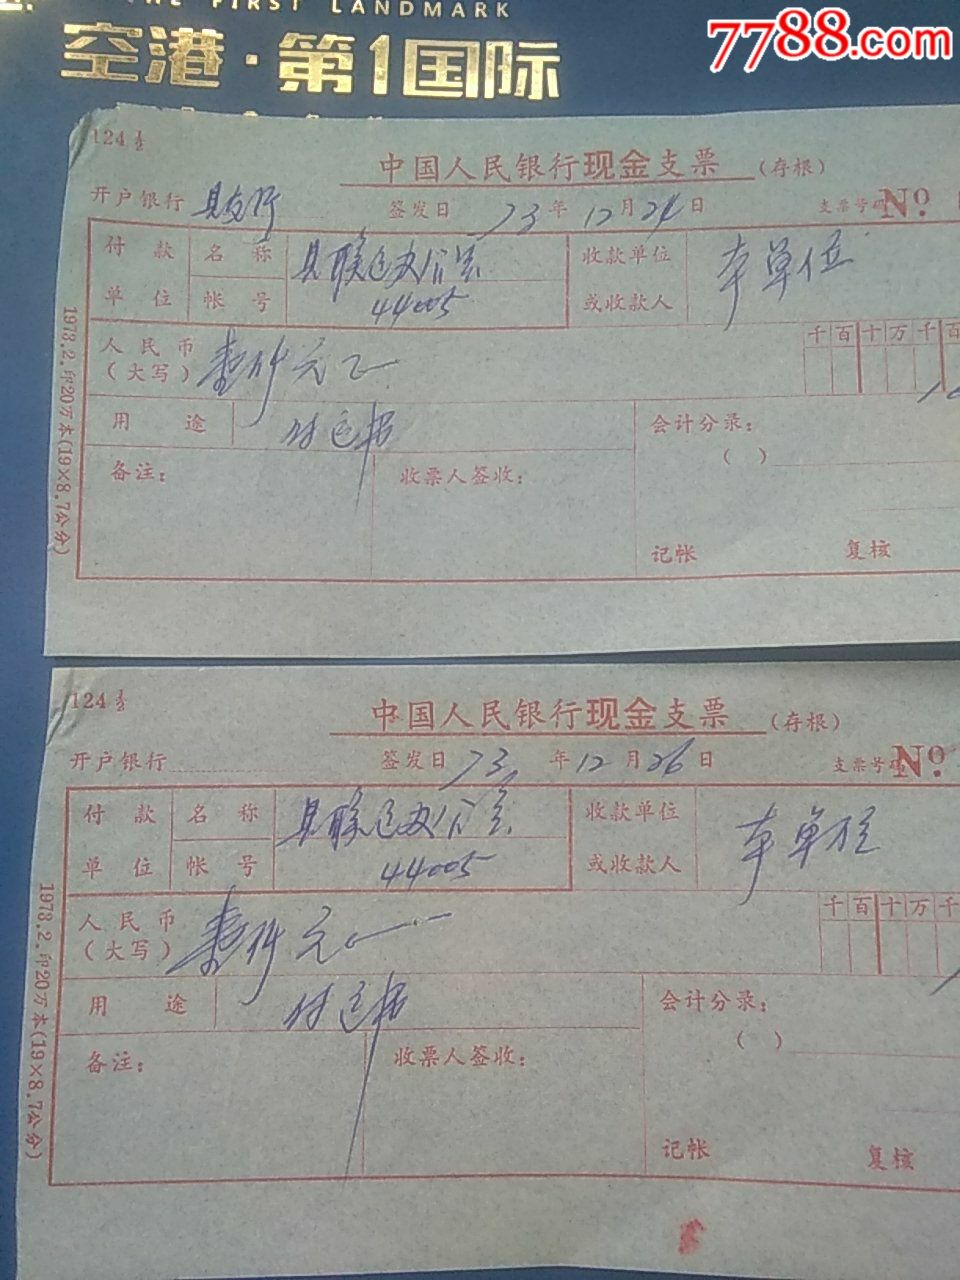 THE FIRST LANDMARK
7788.com
空港·第1国际
124
中国人民银行现金支票 (存根)
开户银行 县支行 签发日 73 年 12 月 24 日 支票号码 No.
付款 名称 县联运办公室 收款单位 本单位
单位 帐号 44005 或收款人
人民币 壹仟元 千百十万千百
(大写)
用途 付运费 会计分录:
( )
备注: 收票人签收:
记帐 复核
1973.2.印20万本(19×8.7公分)
124
中国人民银行现金支票 (存根)
开户银行 签发日 73 年 12 月 26 日 支票号码 No.
付款 名称 县联运办公室 收款单位 本单位
单位 帐号 44005 或收款人
人民币 壹仟元 千百十万千
(大写)
用途 付运费 会计分录:
( )
备注: 收票人签收:
记帐 复核
1973.2.印20万本(19×8.7公分)